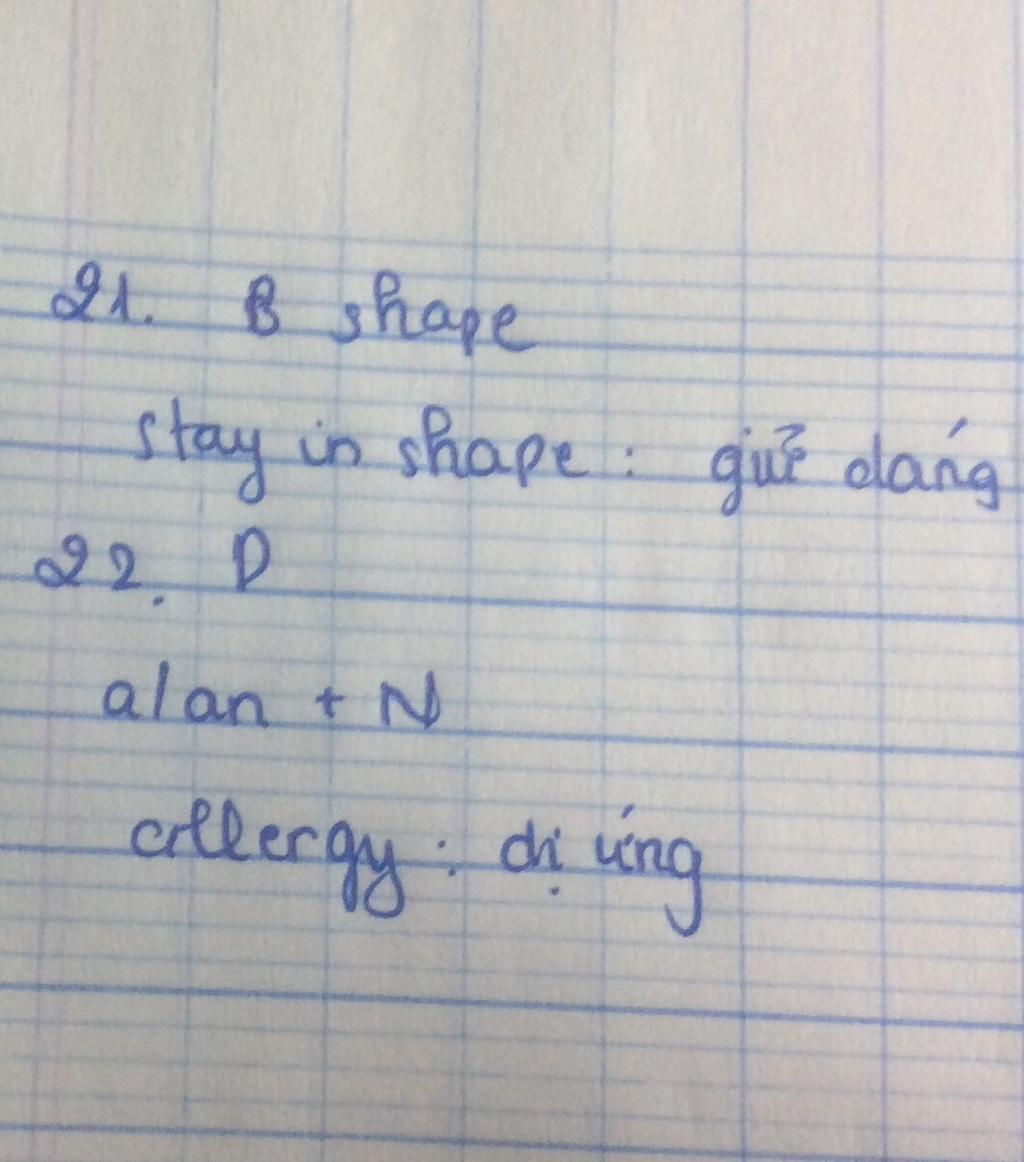 21. B shape
stay in shape : giữ dáng
22. D
a/an + N
allergy : dị ứng